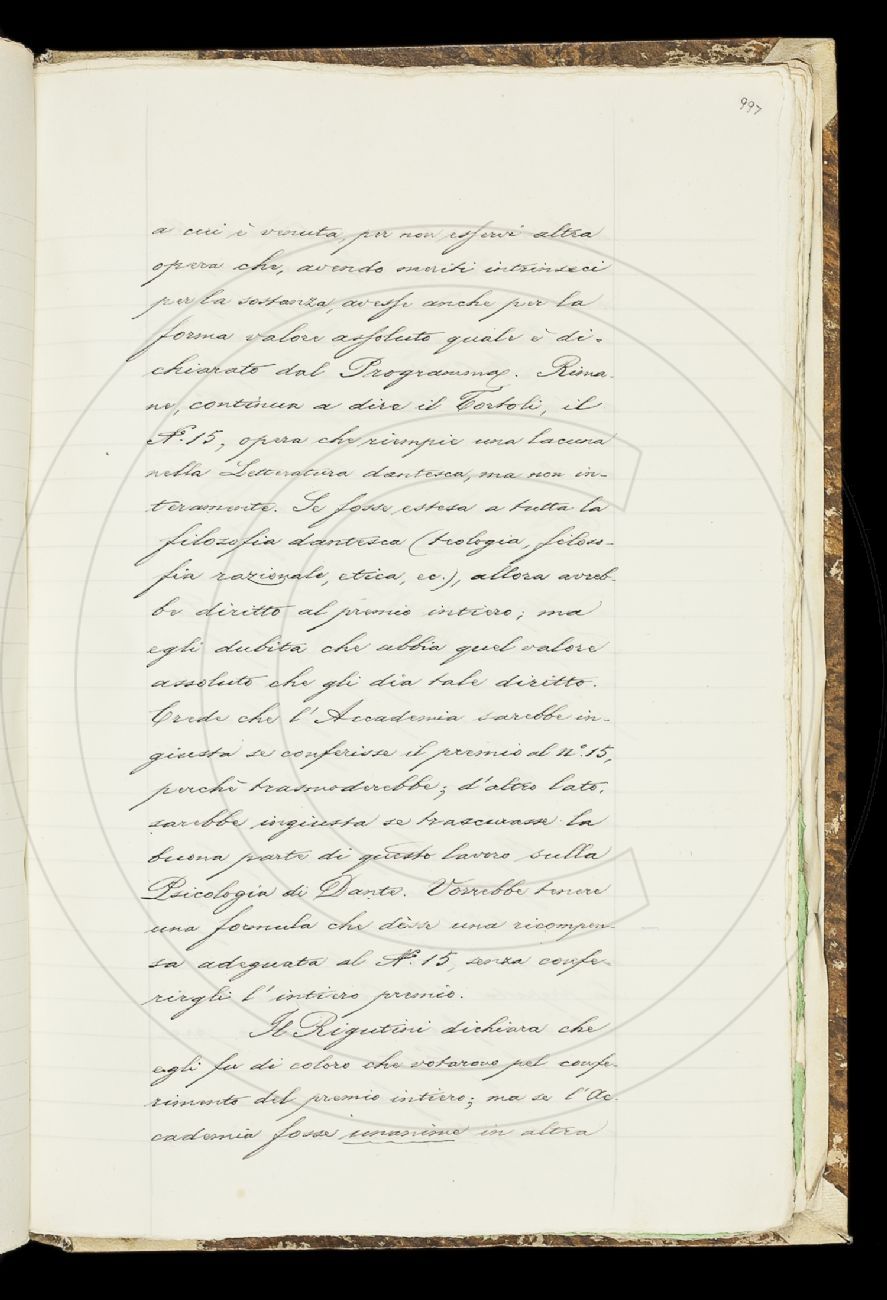 997
a cui è venuta, per non esservi altra
opera che, avendo meriti intrinseci
per la sostanza, avesse anche per la
forma valore assoluto quale è di-
chiarato dal Programma. Rima-
ne, continua a dire il Tortoli, il
N.º 15, opera che riempie una lacuna
nella Letteratura dantesca, ma non in-
teramente. Se fosse estesa a tutta la
filosofia dantesca (teologia, filoso-
fia razionale, etica, ec.), allora avreb-
be diritto al premio intiero; ma
egli dubita che abbia quel valore
assoluto che gli dia tale diritto.
Crede che l'Accademia sarebbe in-
giusta se conferisse il premio al n.º 15,
perchè trasmoderebbe; d'altro lato,
sarebbe ingiusta se trascurasse la
buona parte di questo lavoro sulla
Psicologia di Dante. Vorrebbe tenere
una formula che dèsse una ricompen-
sa adeguata al N.º 15, senza confe-
rirgli l'intiero premio.
Il Rigutini dichiara che
egli fu di coloro che votarono pel confe-
rimento del premio intiero; ma se l'Ac-
cademia fosse unanime in altra